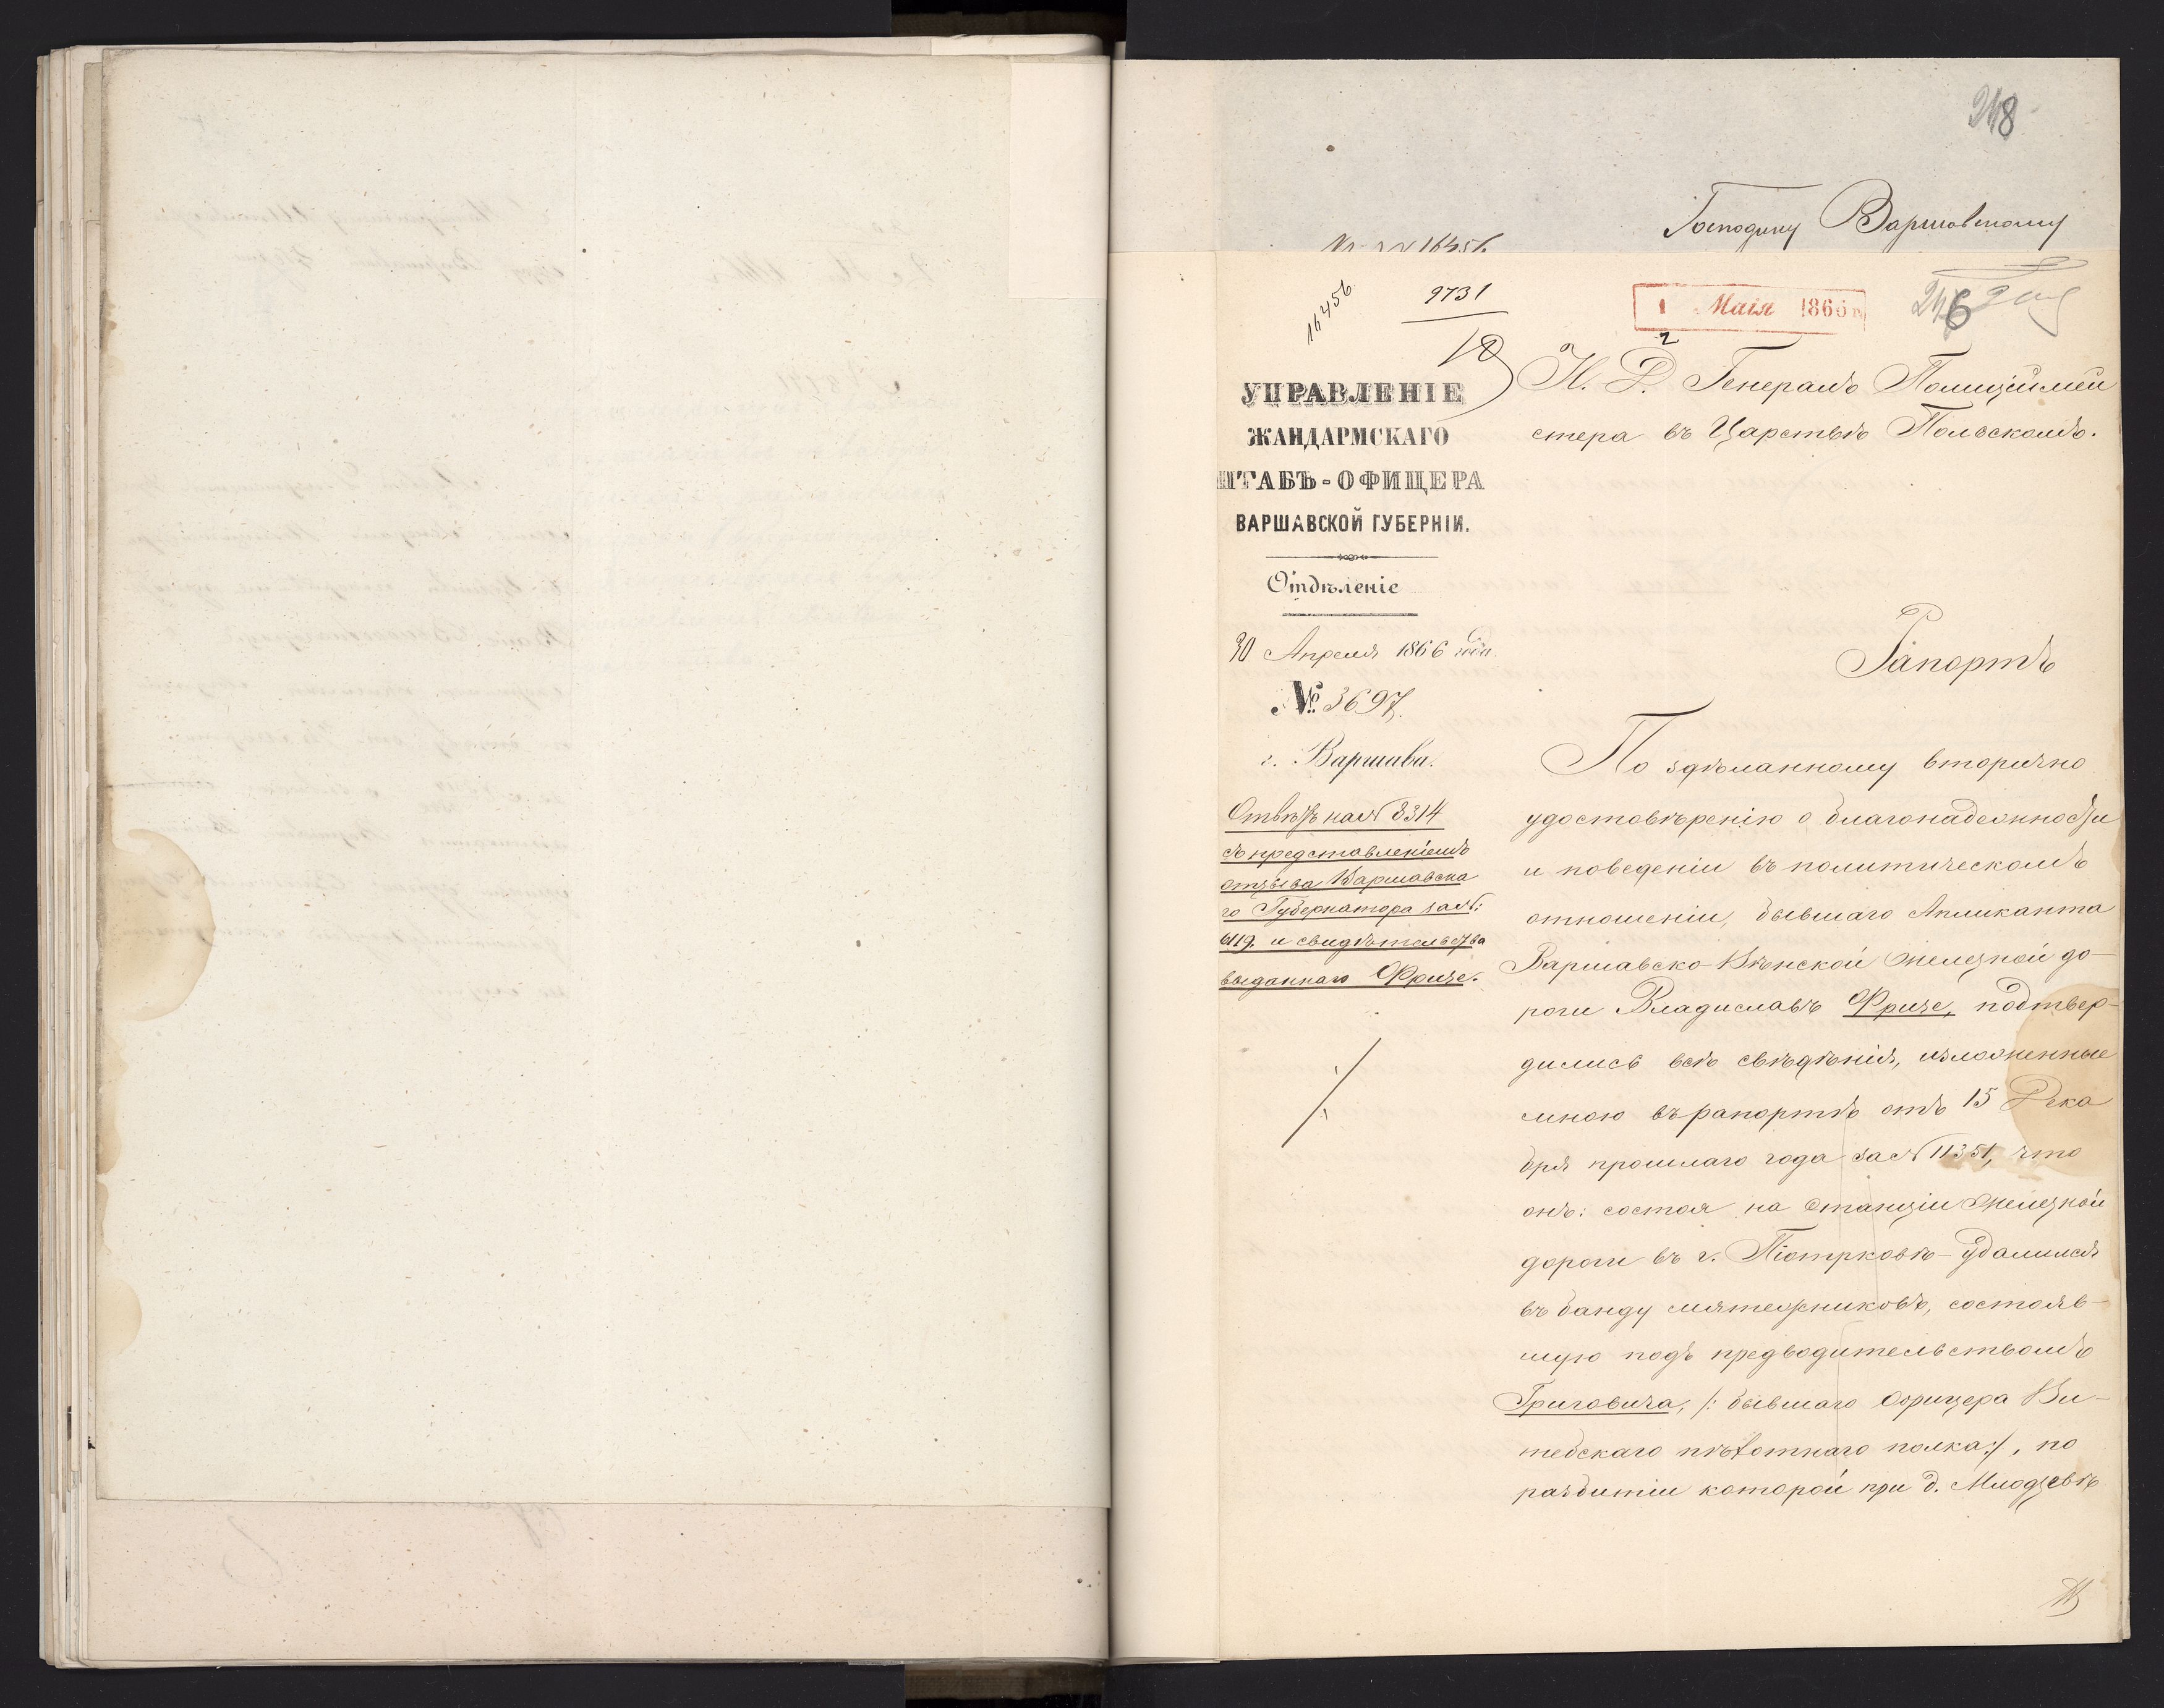 248
Господину Варшавскому
16456
16456
9731
1 Маія 1866 г.
2
246
УПРАВЛЕНІЕ
ЖАНДАРМСКАГО
ШТАБЪ-ОФИЦЕРА
ВАРШАВСКОЙ ГУБЕРНІИ.
Отдѣленіе
30 Апреля 1866 года.
№ 3697.
г. Варшава.
Отвѣтъ на № 8314
съ представленіемъ
отзыва Варшавска
го Губернатора за №:
6119. и свидѣтельства
выданнаго Фризе.
И. Д. Генералъ Полицiймей
стера въ Царствѣ Польскомъ.
Рапортъ
По здѣланному вторично
удостовѣренію о благонадежности
и поведеніи въ политическомъ
отношеніи, бывшаго Апликанта
Варшавско-Вѣнской Железной до-
роги Владиславъ Фризе, подтвер-
дились всѣ свѣдѣнія, изложенные
мною въ рапортѣ отъ 15 Дека
бря прошлаго года за № 11351, что
онъ: состоя на Станціи Железной
дороги въ г. Піотрковѣ - удалился
въ банду мятежниковъ, состояв-
шую подъ предводительствомъ
Григовича, /: бывшаго Офицера Ви-
тебскаго пѣхотнаго полка:/, по
разбитіи которой при д. Млодзевѣ